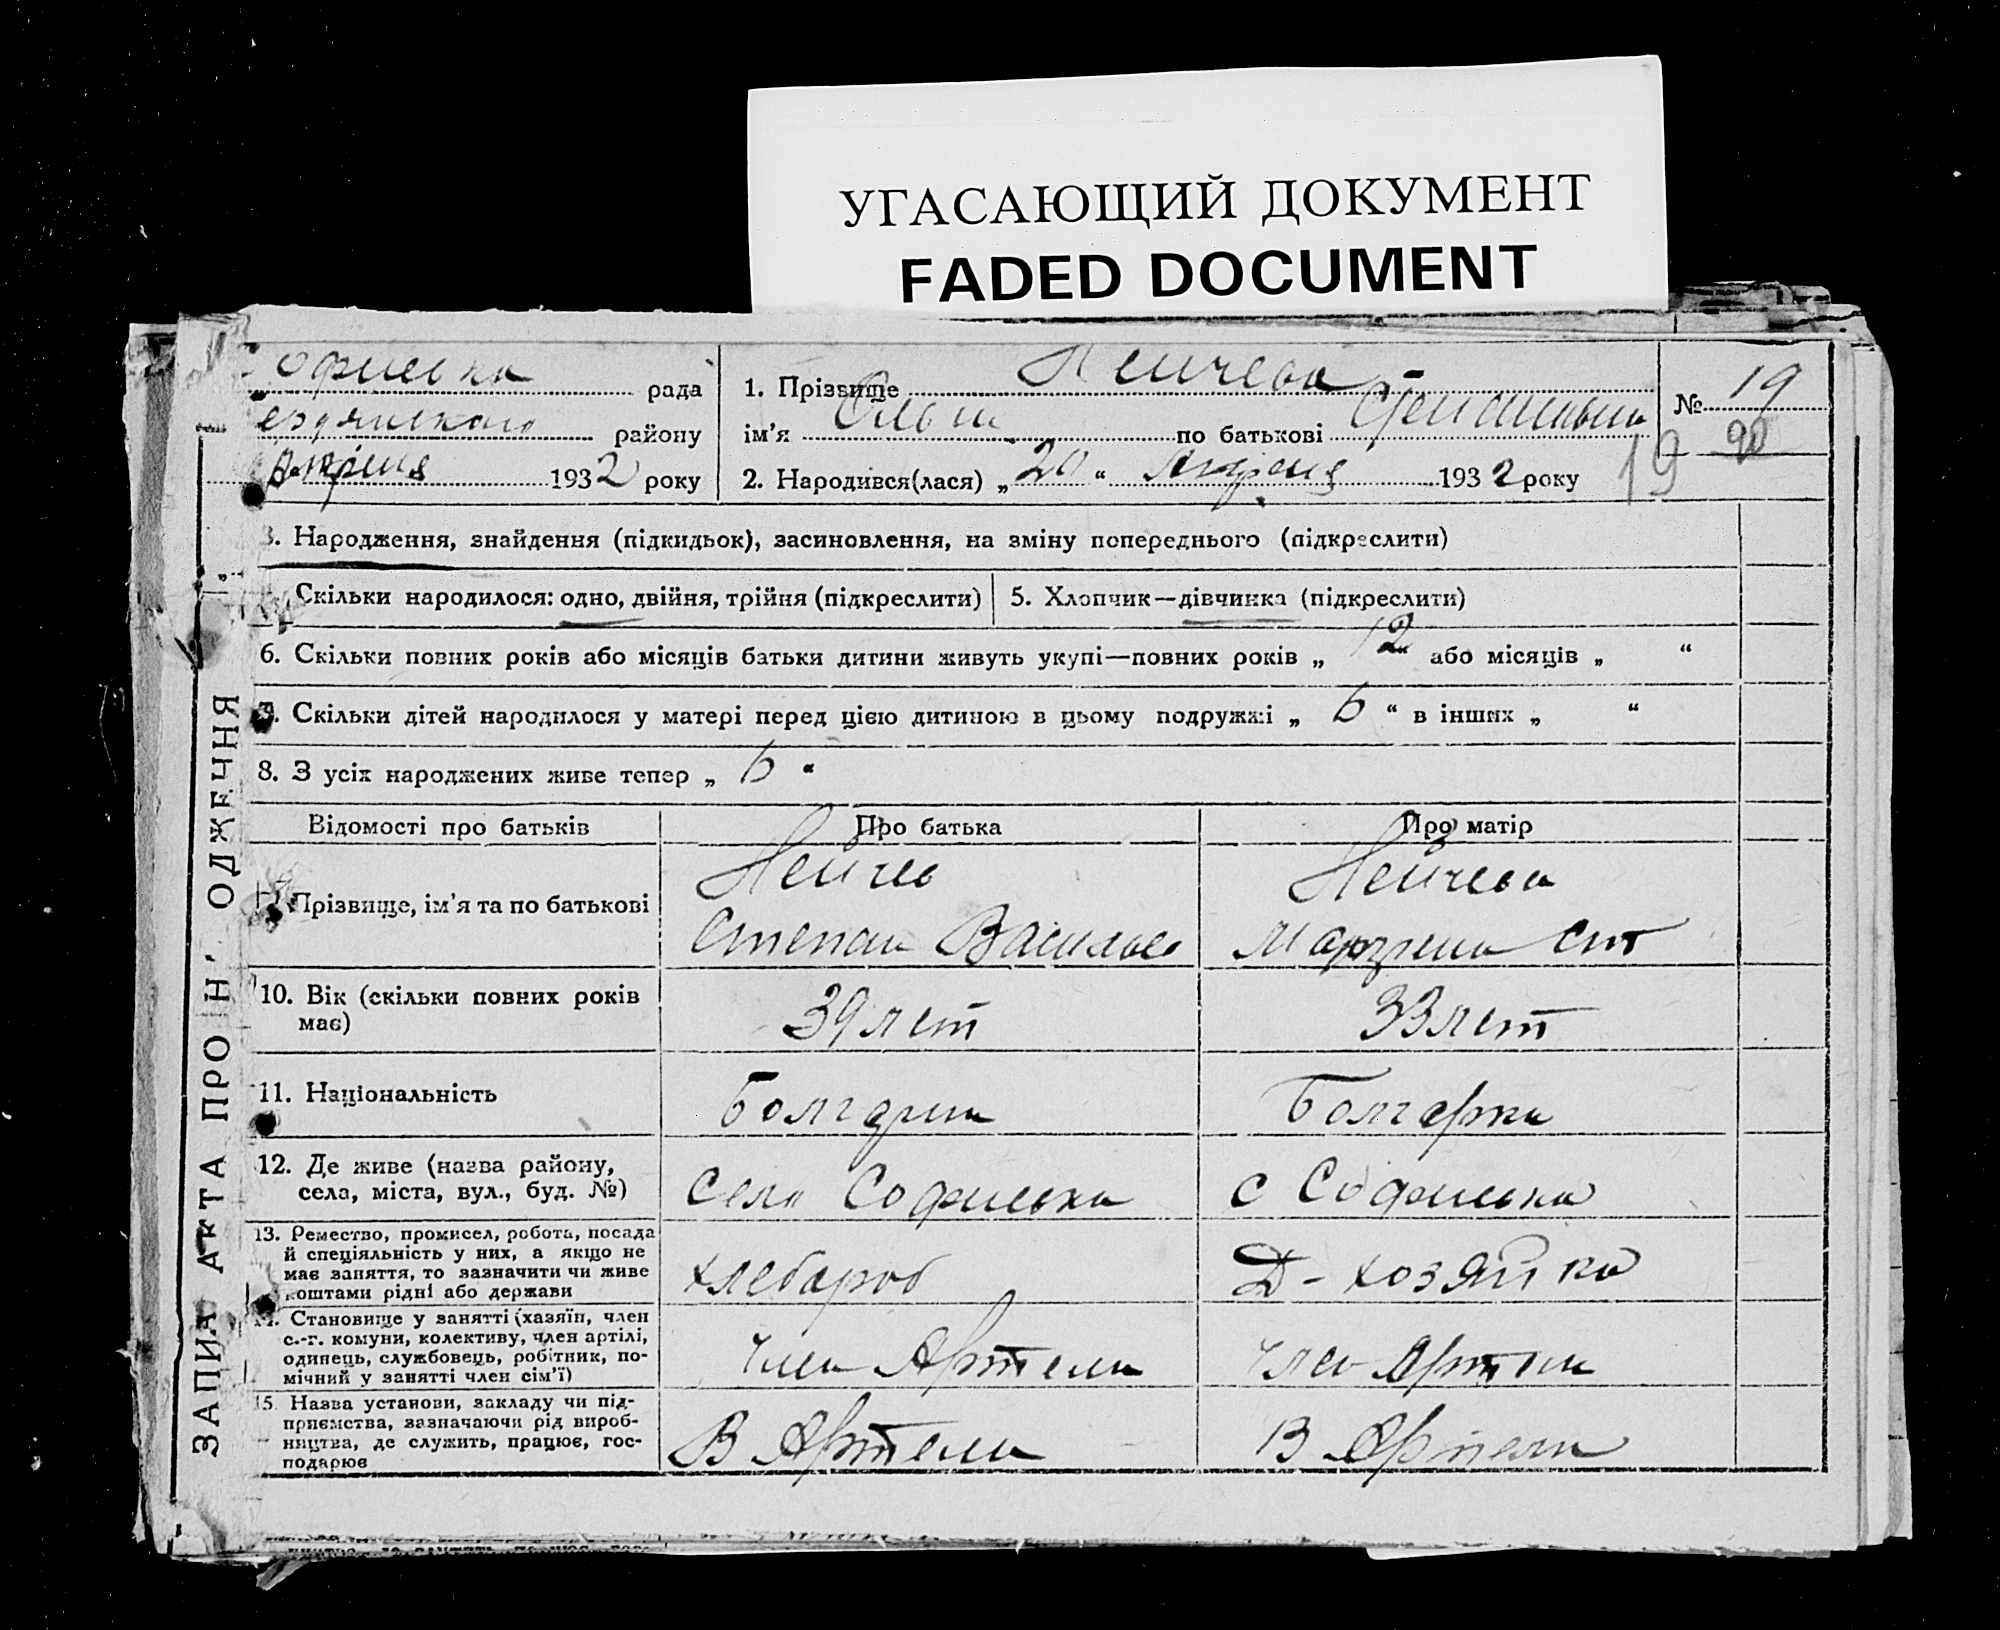 УГАСАЮЩИЙ ДОКУМЕНТ
FADED DOCUMENT
офиевка рада
ердянского району
Апреля 1932 року
1. Прізвище Нейчева
ім'я Ольга по батькові Степановна
2. Народився(лася) „20“ Апреля 1932 року
№ 19
90
19
3. Народження, знайдення (підкидьок), засиновлення, на зміну попереднього (підкреслити)
Скільки народилося: одно, двійня, трійня (підкреслити)
5. Хлопчик—дівчинка (підкреслити)
6. Скільки повних років або місяців батьки дитини живуть укупі—повних років „12“ або місяців „ “
Скільки дітей народилося у матері перед цією дитиною в цьому подружжі „6“ в інших „ “
8. З усіх народжених живе тепер „6“
Відомості про батьків
Про батька
Про матір
Прізвище, ім'я та по батькові
Нейчев
Степан Васильев
Нейчева
10. Вік (скільки повних років
має)
39 лет
33 лет
11. Національність
Болгарин
Болгарка
12. Де живе (назва району,
села, міста, вул., буд. №)
Село Софиевка
с Софиевка
13. Ремество, промисел, робота, посада
й спеціяльність у них, а якщо не
має заняття, то зазначити чи живе
коштами рідні або держави
хлебароб
Д-хозяйка
14. Становище у занятті (хазяїн, член
с.-г. комуни, колективу, член артілі,
одинець, службовець, робітник, по-
мічний у занятті член сім'ї)
член Артели
член Артели
15. Назва установи, закладу чи під-
приємства, зазначаючи рід вироб-
ництва, де служить, працює, гос-
подарює
В Артели
В Артели
ЗАПИС АКТА ПРО Н ОДЖЕННЯ